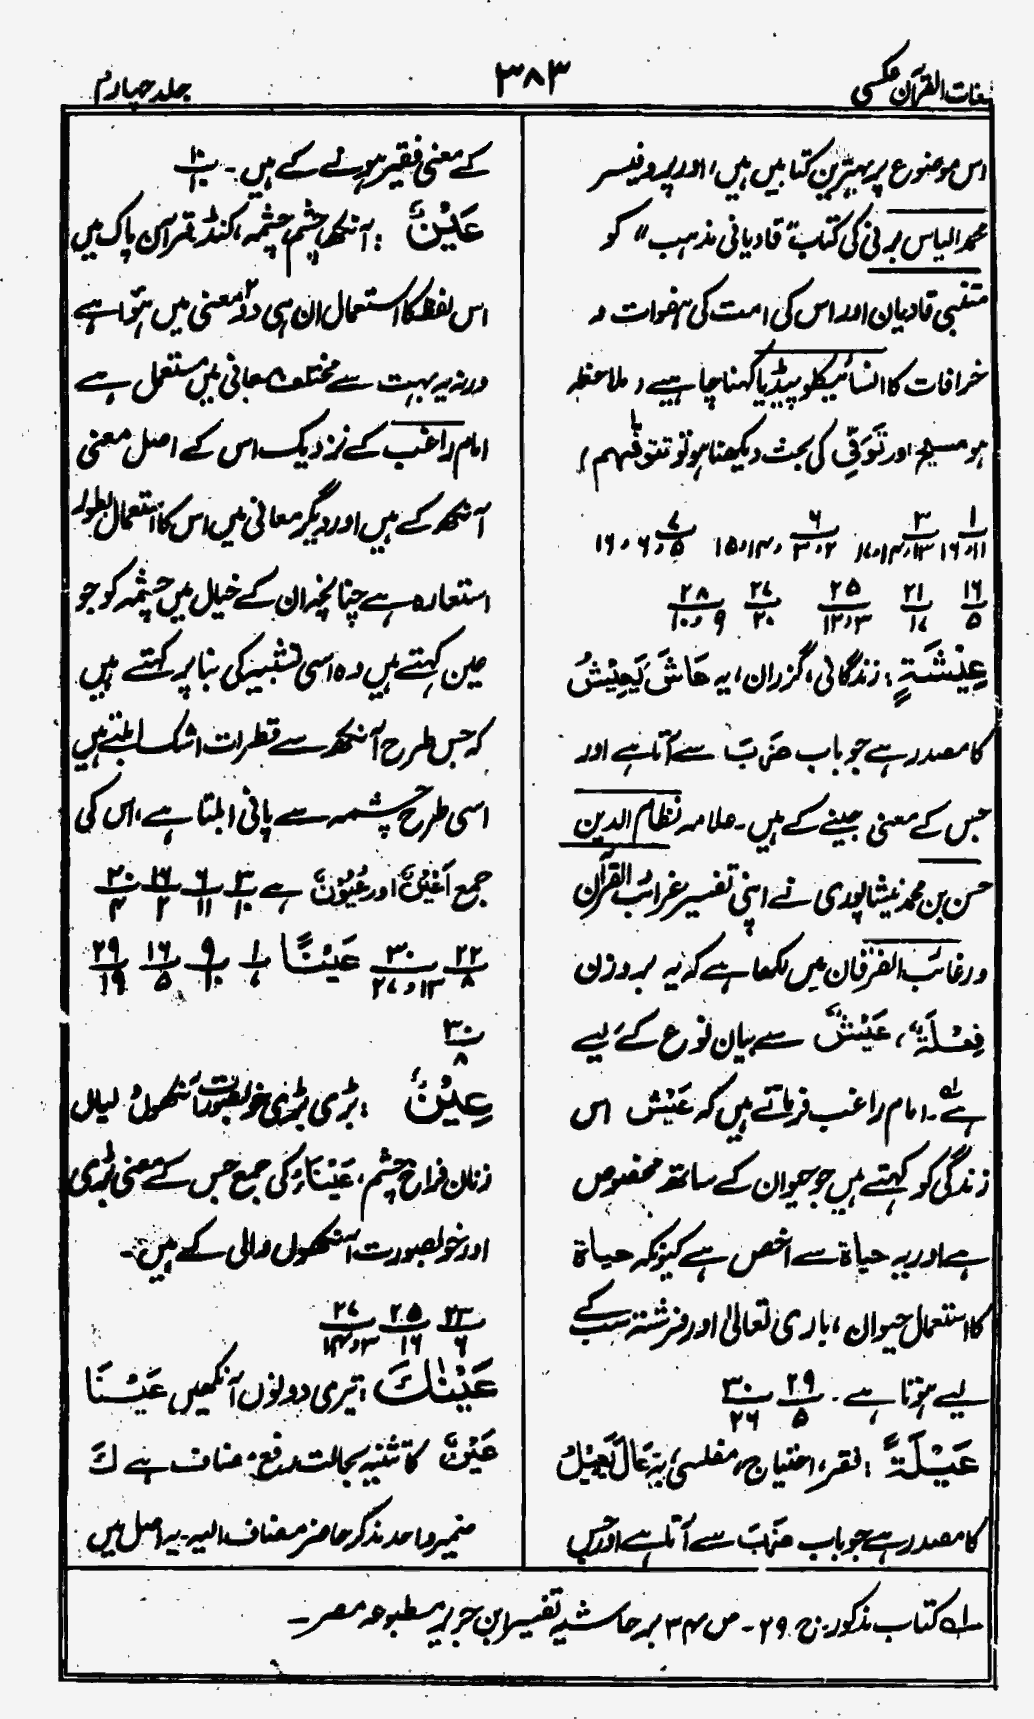 لغات القرآن عکسی
۳۸۳
جلد چہارم
اس موضوع پر بہترین کتابیں ہیں، اور پروفیسر
محمد الیاس برنی کی کتاب "قادیانی مذہب" کو
متنبی قادیان اور اس کی امت کی ہفوات و
خرافات کا انسائیکلوپیڈیا کہنا چاہیے، ملاحظہ
ہو مسیح اور تَوَفِّی کی بحث دیکھنا ہو تو
۱/۱۱و۱۶ ۳/۱۳و۱۴و۱۷ ۶/۲و۳و۱۴و۱۵ ۷/۵و۶و۱۶
۱۶/۵ ۲۱/۱۷ ۲۵/۳و۱۲ ۲۷/۲۰ ۲۸/۹و۱۰
عِیْشَةٍ: زندگانی، گزران، یہ عَاشَ یَعِیْشُ
کا مصدر ہے جو باب ضَرَبَ سے آتا ہے اور
جس کے معنی جینے کے ہیں۔ علامہ نظام الدین
حسن بن محمد نیشاپوری نے اپنی تفسیر غرائب القرآن
ورغائب الفرقان میں لکھا ہے کہ یہ بروزن
فِعْلَةٌ، عَیْشٌ سے بیان نوع کے لیے
ہے لہ۔ امام راغب فرماتے ہیں کہ عَیْش اس
زندگی کو کہتے ہیں جو حیوان کے ساتھ مخصوص
ہے اور یہ حیاۃ سے اخص ہے کیونکہ حیاۃ
کا استعمال حیوان، باری تعالیٰ اور فرشتہ سب کے
لیے ہوتا ہے۔ ۲۹/۵ ۳۰/۲۶
عَیْلَةً: فقر، احتیاج، مفلسی، یہ عَالَ یَعِیْلُ
کا مصدر ہے جو باب ضَرَبَ سے آتا ہے اور جس
کے معنی فقیر ہونے کے ہیں۔ ۱۰/۱۰
عَیْنٌ: آنکھ، چشم، چشمہ، کنڈ، قرآن پاک میں
اس لفظ کا استعمال ان ہی دو ۲ معنی میں ہوا ہے
ورنہ یہ بہت سے مختلف معانی میں مستعمل ہے
امام راغب کے نزدیک اس کے اصل معنی
آنکھ کے ہیں اور دیگر معانی میں اس کا استعمال بطور
استعارہ ہے چنانچہ ان کے خیال میں چشمہ کو جو
عین کہتے ہیں وہ اسی تشبیہ کی بنا پر کہتے ہیں
کہ جس طرح آنکھ سے قطرات اشک ابلتے ہیں
اسی طرح چشمہ سے پانی ابلتا ہے، اس کی
جمع اَعْیُنٌ اور عُیُوْنٌ ہے ۳/۱۰ ۶/۱۱ ۱۶/۲ ۳۰/۴
۲۲/۸ ۳۰/۱۳و۲۷ عَیْنًا ۱/۷ ۹/۱۰ ۱۶/۵ ۲۹/۱۹
۳۰/۸
عِیْنٌ: بڑی بڑی خوبصورت آنکھوں والیاں
زنان فراخ چشم، عَیْنَاءُ کی جمع جس کے معنی بڑی
اور خوبصورت آنکھوں والی کے ہیں۔
۲۳/۶ ۲۵/۱۶ ۲۷/۳و۱۴
عَیْنٰكَ: تیری دونوں آنکھیں عَیْنَا
عَیْنٌ کا تثنیہ بحالت رفع، مضاف ہے كَ
ضمیر واحد مذکر حاضر مضاف الیہ۔ یہ اصل میں
لہ کتاب مذکور ج ۲۹۔ ص ۳۴ بر حاشیہ تفسیر ابن جریر مطبوعہ مصر۔